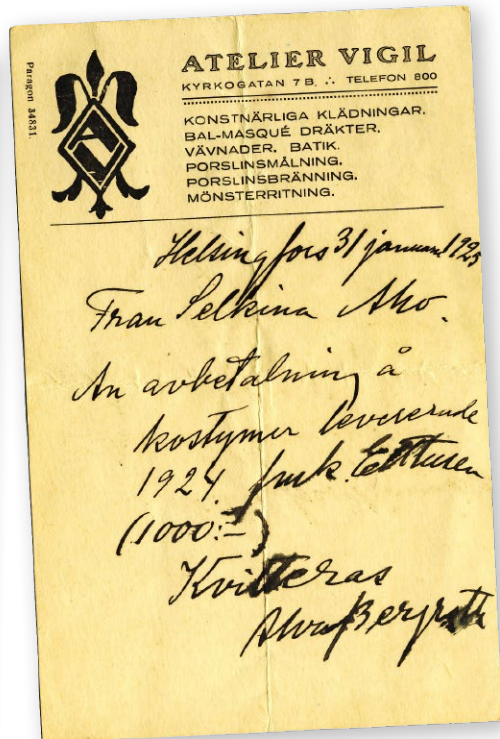 Paragon 34831.
ATELIER VIGIL
KYRKOGATAN 7 B. ∴ TELEFON 800
KONSTNÄRLIGA KLÄDNINGAR.
BAL-MASQUÉ DRÄKTER.
VÄVNADER. BATIK.
PORSLINSMÅLNING.
PORSLINSBRÄNNING.
MÖNSTERRITNING.
AV
Helsingfors 31 januari 1925
Aho.
An avbetalning å
kostymer levererade
1924. fmk. Ettusen
(1000:-)
Kvitteras